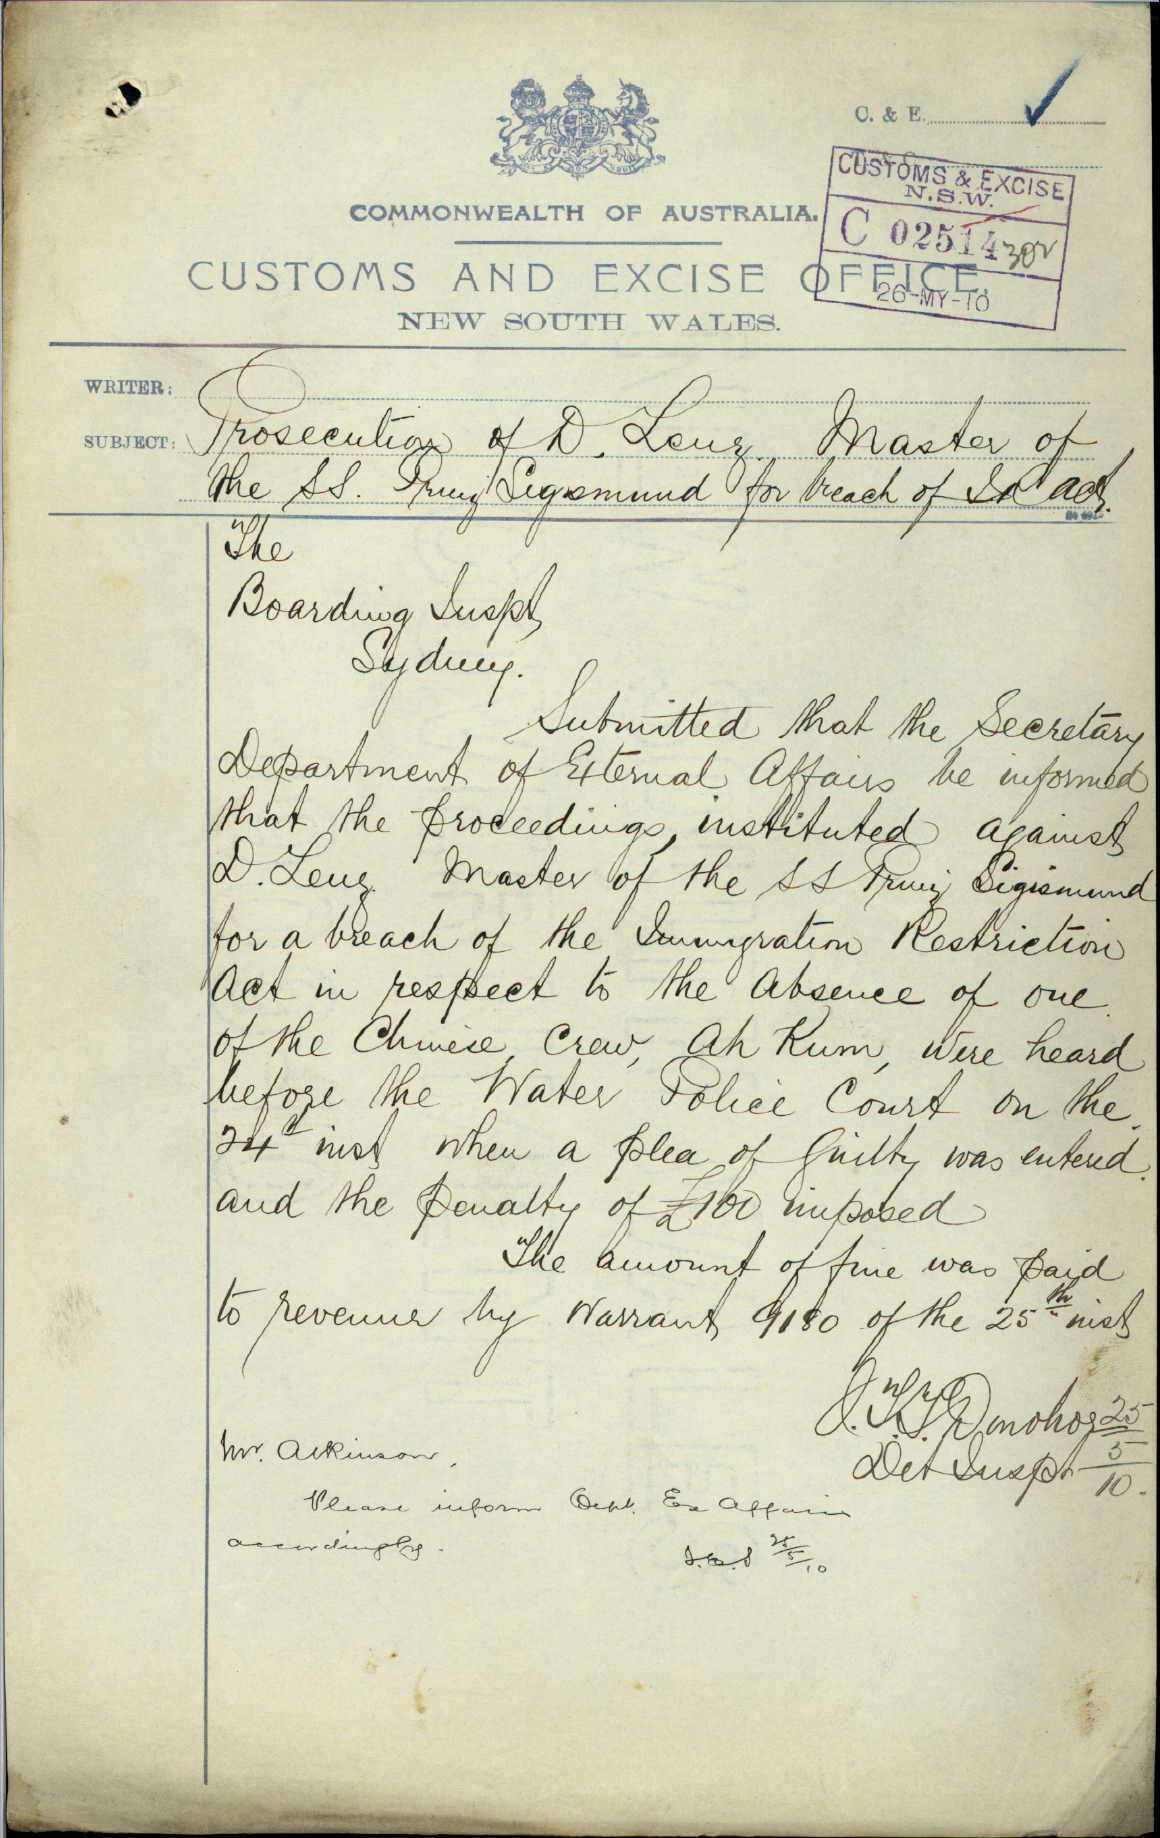 C. & E.
CUSTOMS & EXCISE
N.S.W.
C 02514 302
26-MY-10
COMMONWEALTH OF AUSTRALIA.
CUSTOMS AND EXCISE OFFICE,
NEW SOUTH WALES.
WRITER:
SUBJECT: Prosecution of D. Lenz. Master of
the SS. Prinz Sigismund for breach of I R Act.
The
Boarding Inspt,
Sydney.
Submitted that the Secretary
Department of External Affairs be informed
that the proceedings, instituted against
D. Lenz. Master of the SS Prinz Sigismund
for a breach of the Immigration Restriction
Act in respect to the absence of one
of the Chinese Crew, Ah Kum, were heard
before the Water Police Court on the
24th inst when a plea of Guilty was entered.
and the penalty of £100 imposed
The amount of fine was paid
to revenue by Warrant 9180 of the 25th inst
J.T.T. Donohoe 25
Det Inspt 5
10.
Mr. Atkinson,
Please inform Dept. Ex Affairs
accordingly.
25/5/10